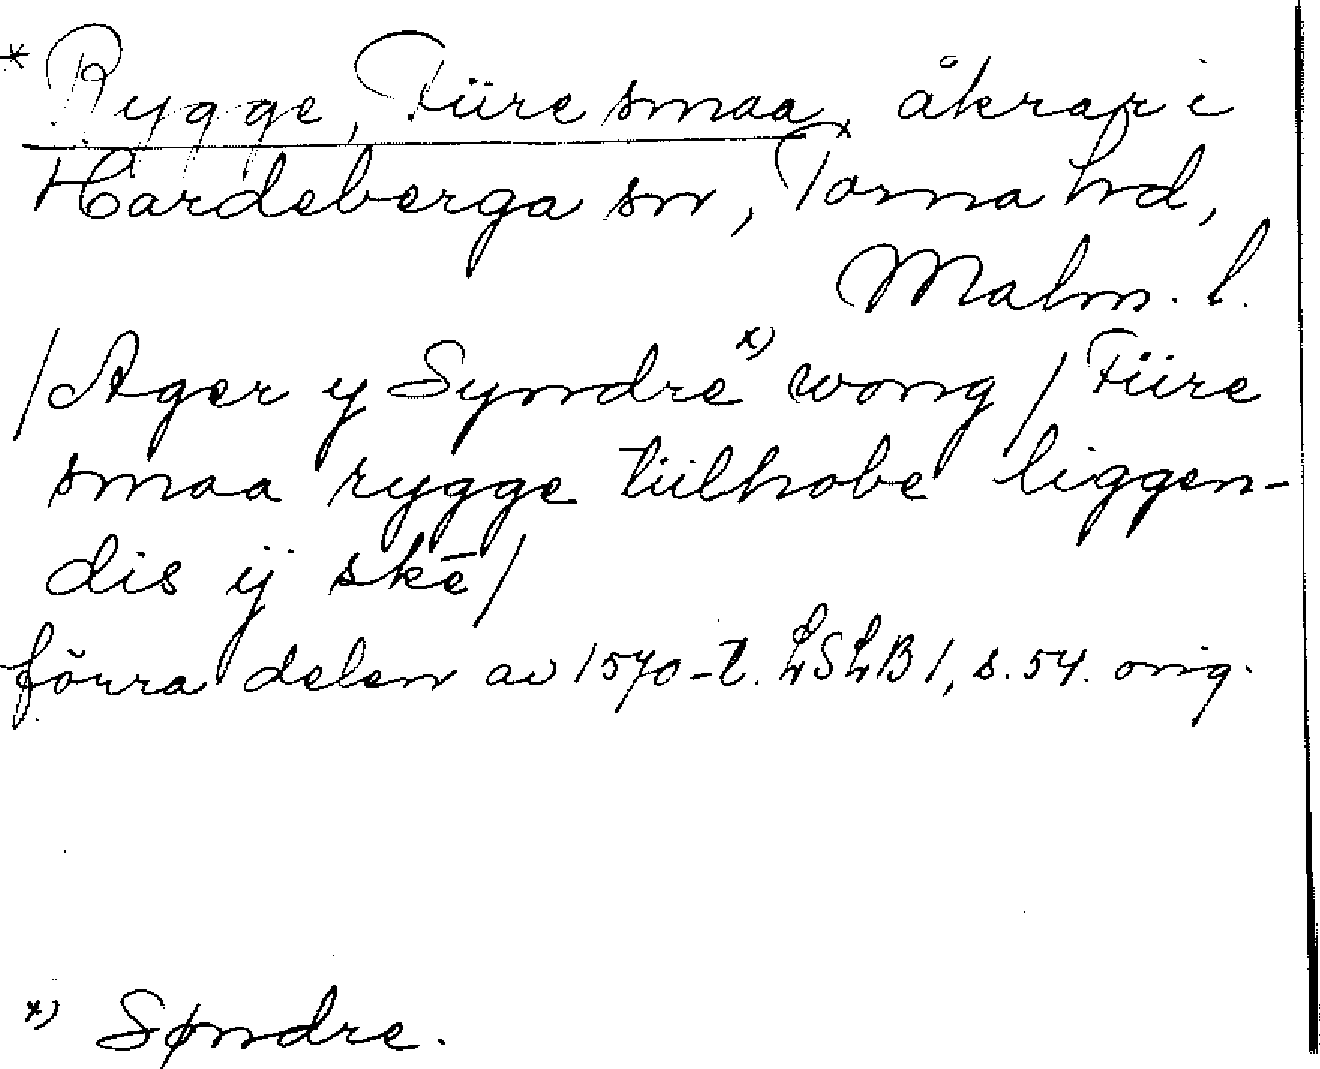 * Rygge, Füre smaa, åkrar i
Hardeberga sn, Torna hd,
Malm. l.
/Ager y Syndre x) wong / Füre
smaa rygge tiilhobe liggen-
dis ÿ skē/
förra delen av 1570-t. LSLB 1, s. 54. orig.
x) Søndre.